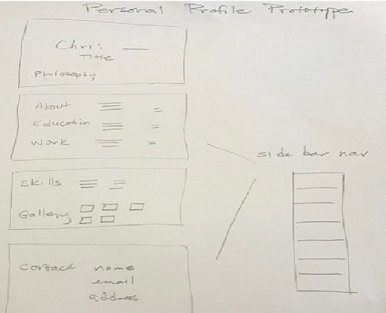 Personal Profile Prototype
Chris
Title
Philosophy
About
Education
Work
side bar nav
Skills
Gallery
Contact name
email
address